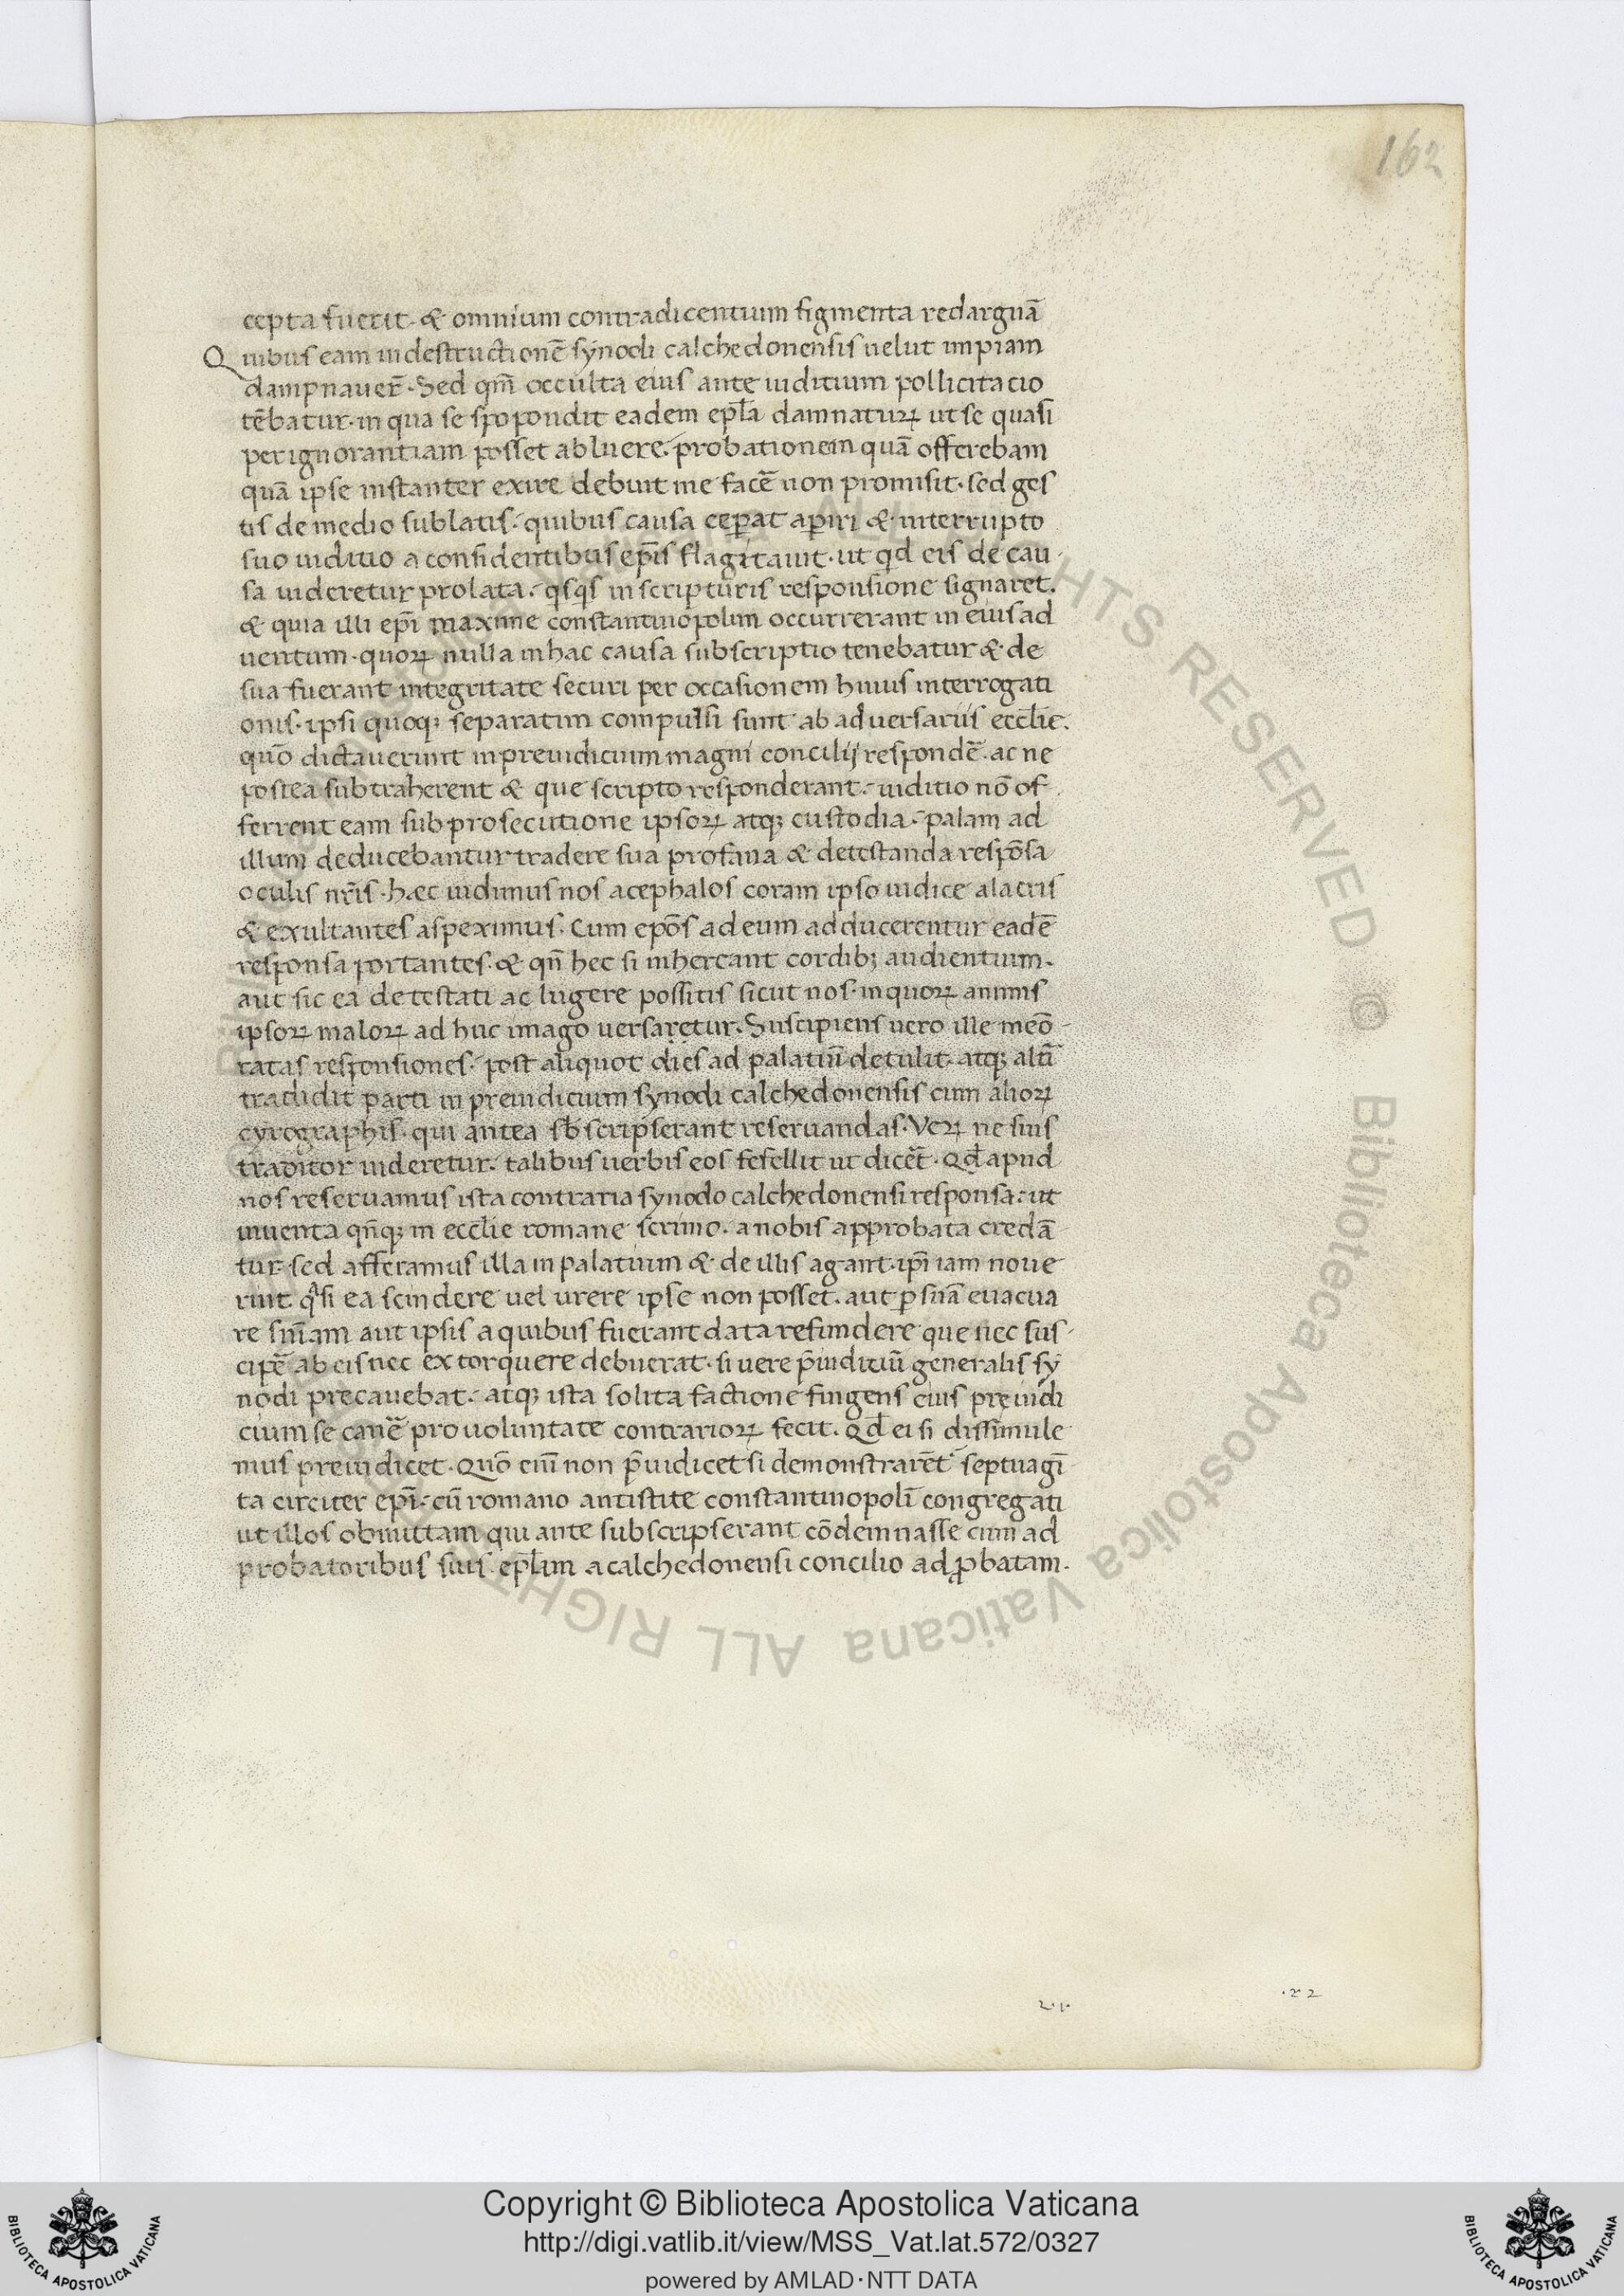 162
cepta fuerit · & omnium contradicentium figmenta redarguā
Quibus eam in destructionē synodi calchedonensis uelut impiam
dampnauer̄ · Sed qm̄ occulta eius ante iuditium pollicitacio
tēbatur · in qua se spopondit eadem ep̄la damnaturꝝ ut se quasi
per ignorantiam posset abluere · probationem quā offerebam
quā ipse instanter exire debuit me facē non promisit · sed ges
tis de medio sublatis · quibus causa ceꝑat aꝑiri & interrupto
suo iuditio a considentibus ep̄is flagitauit · ut qd eis de cau
sa uideretur prolata · qsqs in scripturis responsione signaret.
& quia illi ep̄i maxime constantinopolim occurrerant in eius ad
uentum · quoꝝ nulla in hac causa subscriptio tenebatur & de
sua fuerant integritate securi per occasionem huius interrogati
onis · ipsi quoqꝫ separatim compulsi sunt ab aduersariis eccl̄ie.
quō dictauerunt in preiudicium magni concilij respondē · ac ne
postea subtraherent & que scripto responderant · iuditio nō of
ferrent eam sub prosecutione ipsoꝝ atqꝫ custodia · palam ad
illum deducebantur tradere sua profana & detestanda respōsa
oculis nr̄is · hæc uidimus nos acephalos coram ipso iudice alacris
& exultantes aspeximus. Cum ep̄os ad eum adducerentur eadē
responsa portantes · & qn̄ hec si inhereant cordibꝫ audientium ·
aut sic ea detestati ac lugere possitis sicut nos · in quoꝝ animis
ipsoꝝ maloꝝ ad huc imago uersaretur · Suscipiens uero ille meō
ratas responsiones · post aliquot dies ad palatiū detulit · atqꝫ alti
tradidit parti in preiudicium synodi calchedonensis cum alioꝝ
cyrographis · qui antea sb̄scripserant reseruandas · Veꝝ ne suis
traditor uideretur · talibus uerbis eos fefellit ut dicēt · Qd̄ apud
nos reseruamus ista contraria synodo calchedonensi responsa · ut
inuenta qn̄qꝫ in eccl̄ie romane scrinio · a nobis approbata credā
tur · sed afferamus illa in palatium & de illis agant · ip̄i iam noue
rint qͣsi ea scindere uel urere ipse non posset · aut ꝑ suā euacua
re sn̄iam aut ipsis a quibus fuerant data refundere que nec sus
cipē ab eis nec extorquere debuerat · si uere p̄iuditiū generalis sy
nodi precauebat · atqꝫ ista solita factione fingens eius pręiudi
cium se cauē pro uoluntate contrarioꝝ fecit · Qd̄ ei si dissimule
mus preiudicet · Quō eiū non p̄iudicet si demonstrarēt septuagī
ta circiter ep̄i · cū romano antistite constantinopolī congregati
ut illos obmittam qui ante subscripserant cōdemnasse cum ad
probatoribus suis · ep̄lam a calchedonensi concilio adꝓbatam ·
Copyright © Biblioteca Apostolica Vaticana ALL RIGHTS RESERVED
© Biblioteca Apostolica Vaticana ALL RIGHTS RESERVED
BIBLIOTECA APOSTOLICA VATICANA
Copyright © Biblioteca Apostolica Vaticana
http://digi.vatlib.it/view/MSS_Vat.lat.572/0327
powered by AMLAD·NTT DATA
BIBLIOTECA APOSTOLICA VATICANA